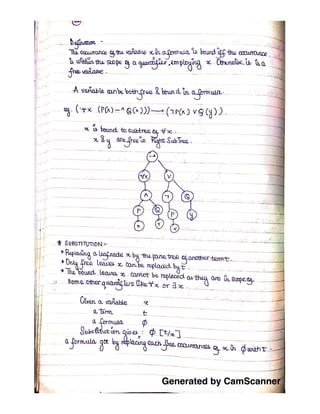 Definition -
The occurance of the variable x in a formula is bound iff the occurrence
is within the scope of a quantifier, employing x. Otherwise, it is a
free variable.
A variable can be both free & bound in a formula.
eg. (∀x (P(x) → ∧ Q(x))) → (¬P(x) ∨ Q(y)).
x is bound to subtree of ∀x.
x & y are free in Right SubTree.
→
∀x ∨
∧ ¬ Q
P Q P y
x x x
* SUBSTITUTION:-
* Replacing a leaf node x by the parse tree of another term t.
* Only free leaves x can be replaced by t.
* The bound leaves x cannot be replaced as they are in scope of
some other quantifiers like ∀x or ∃x.
Given a variable x
a term t
a formula ϕ
Substitution gives: ϕ [t/x]
a formula got by replacing each free occurrences of x in ϕ with t.
Generated by CamScanner